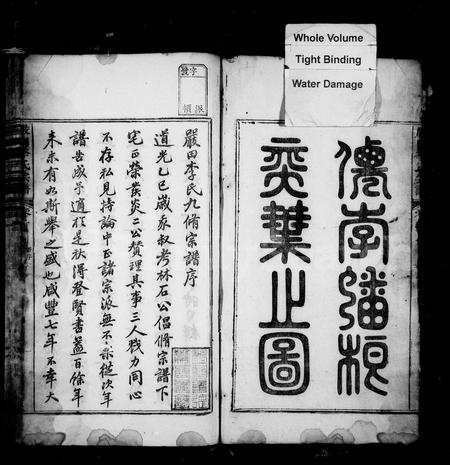 Whole Volume
Tight Binding
Water Damage
僊李蟠根
奕葉止圖
字
號
派
領
嚴田李氏九脩宗譜序
道光乙巳歲叅叔考林石公倡脩宗譜下
宅正榮黨炎二公贊理其事三人戮力同心
不存私見持論中正諸宗派無不樂從次年
譜告成予適於是秋得登賢書蓋百餘年
來未有如斯舉之盛也咸豐七年不幸大